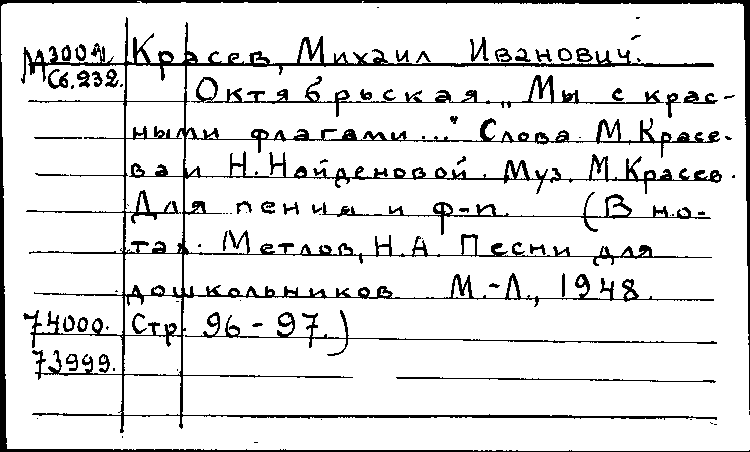 М 300 Л. Красев, Михаил Иванович.
Сб. 232. Октябрьская. „Мы с крас-
ными флагами..." Слова М. Красе-
ва и Н. Найденовой. Муз. М. Красев.
Для пения и ф-п. (В но-
тах: Метлов, Н.А. Песни для
дошкольников М.-Л., 1948.
74000. Стр. 96-97.)
73999.